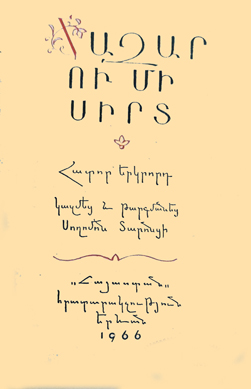 ՀԱԶԱՐ
ՈՒ ՄԻ
ՍԻՐՏ
Հատոր երկրորդ
կազմեց և թարգմանեց
Սողոմոն Տարոնցի
„Հայաստան„
հրատարակչություն
Երևան
1966